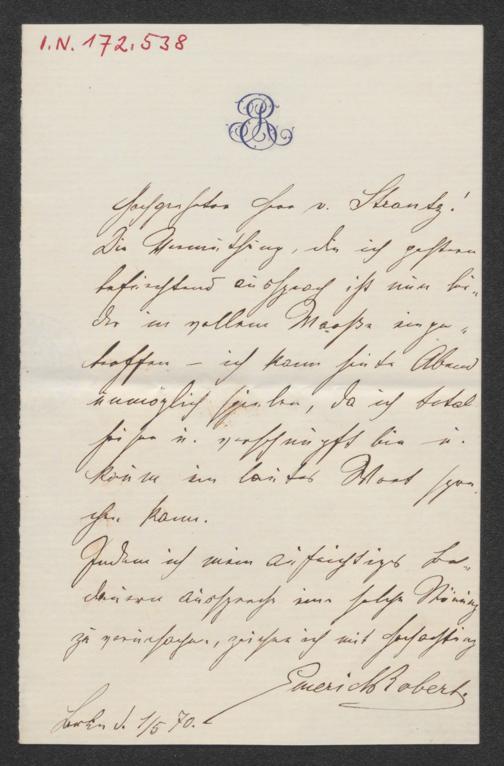 I.N. 172.538
ER
Hochgeehrter Herr v. Strantz!
Die Vermuthung, die ich gestern
befürchtend aussprach ist nun lei-
der in vollem Maaße einge-
troffen – ich kann heute Abend
unmöglich spielen, da ich total
heiser u. verschnupft bin u.
kaum ein lautes Wort spre-
chen kann.
Indem ich mein aufrichtiges Be-
dauern ausspreche eine solche Störung
zu verursachen, zeichne ich mit Hochachtung
Emerich Robert
1/5 70.